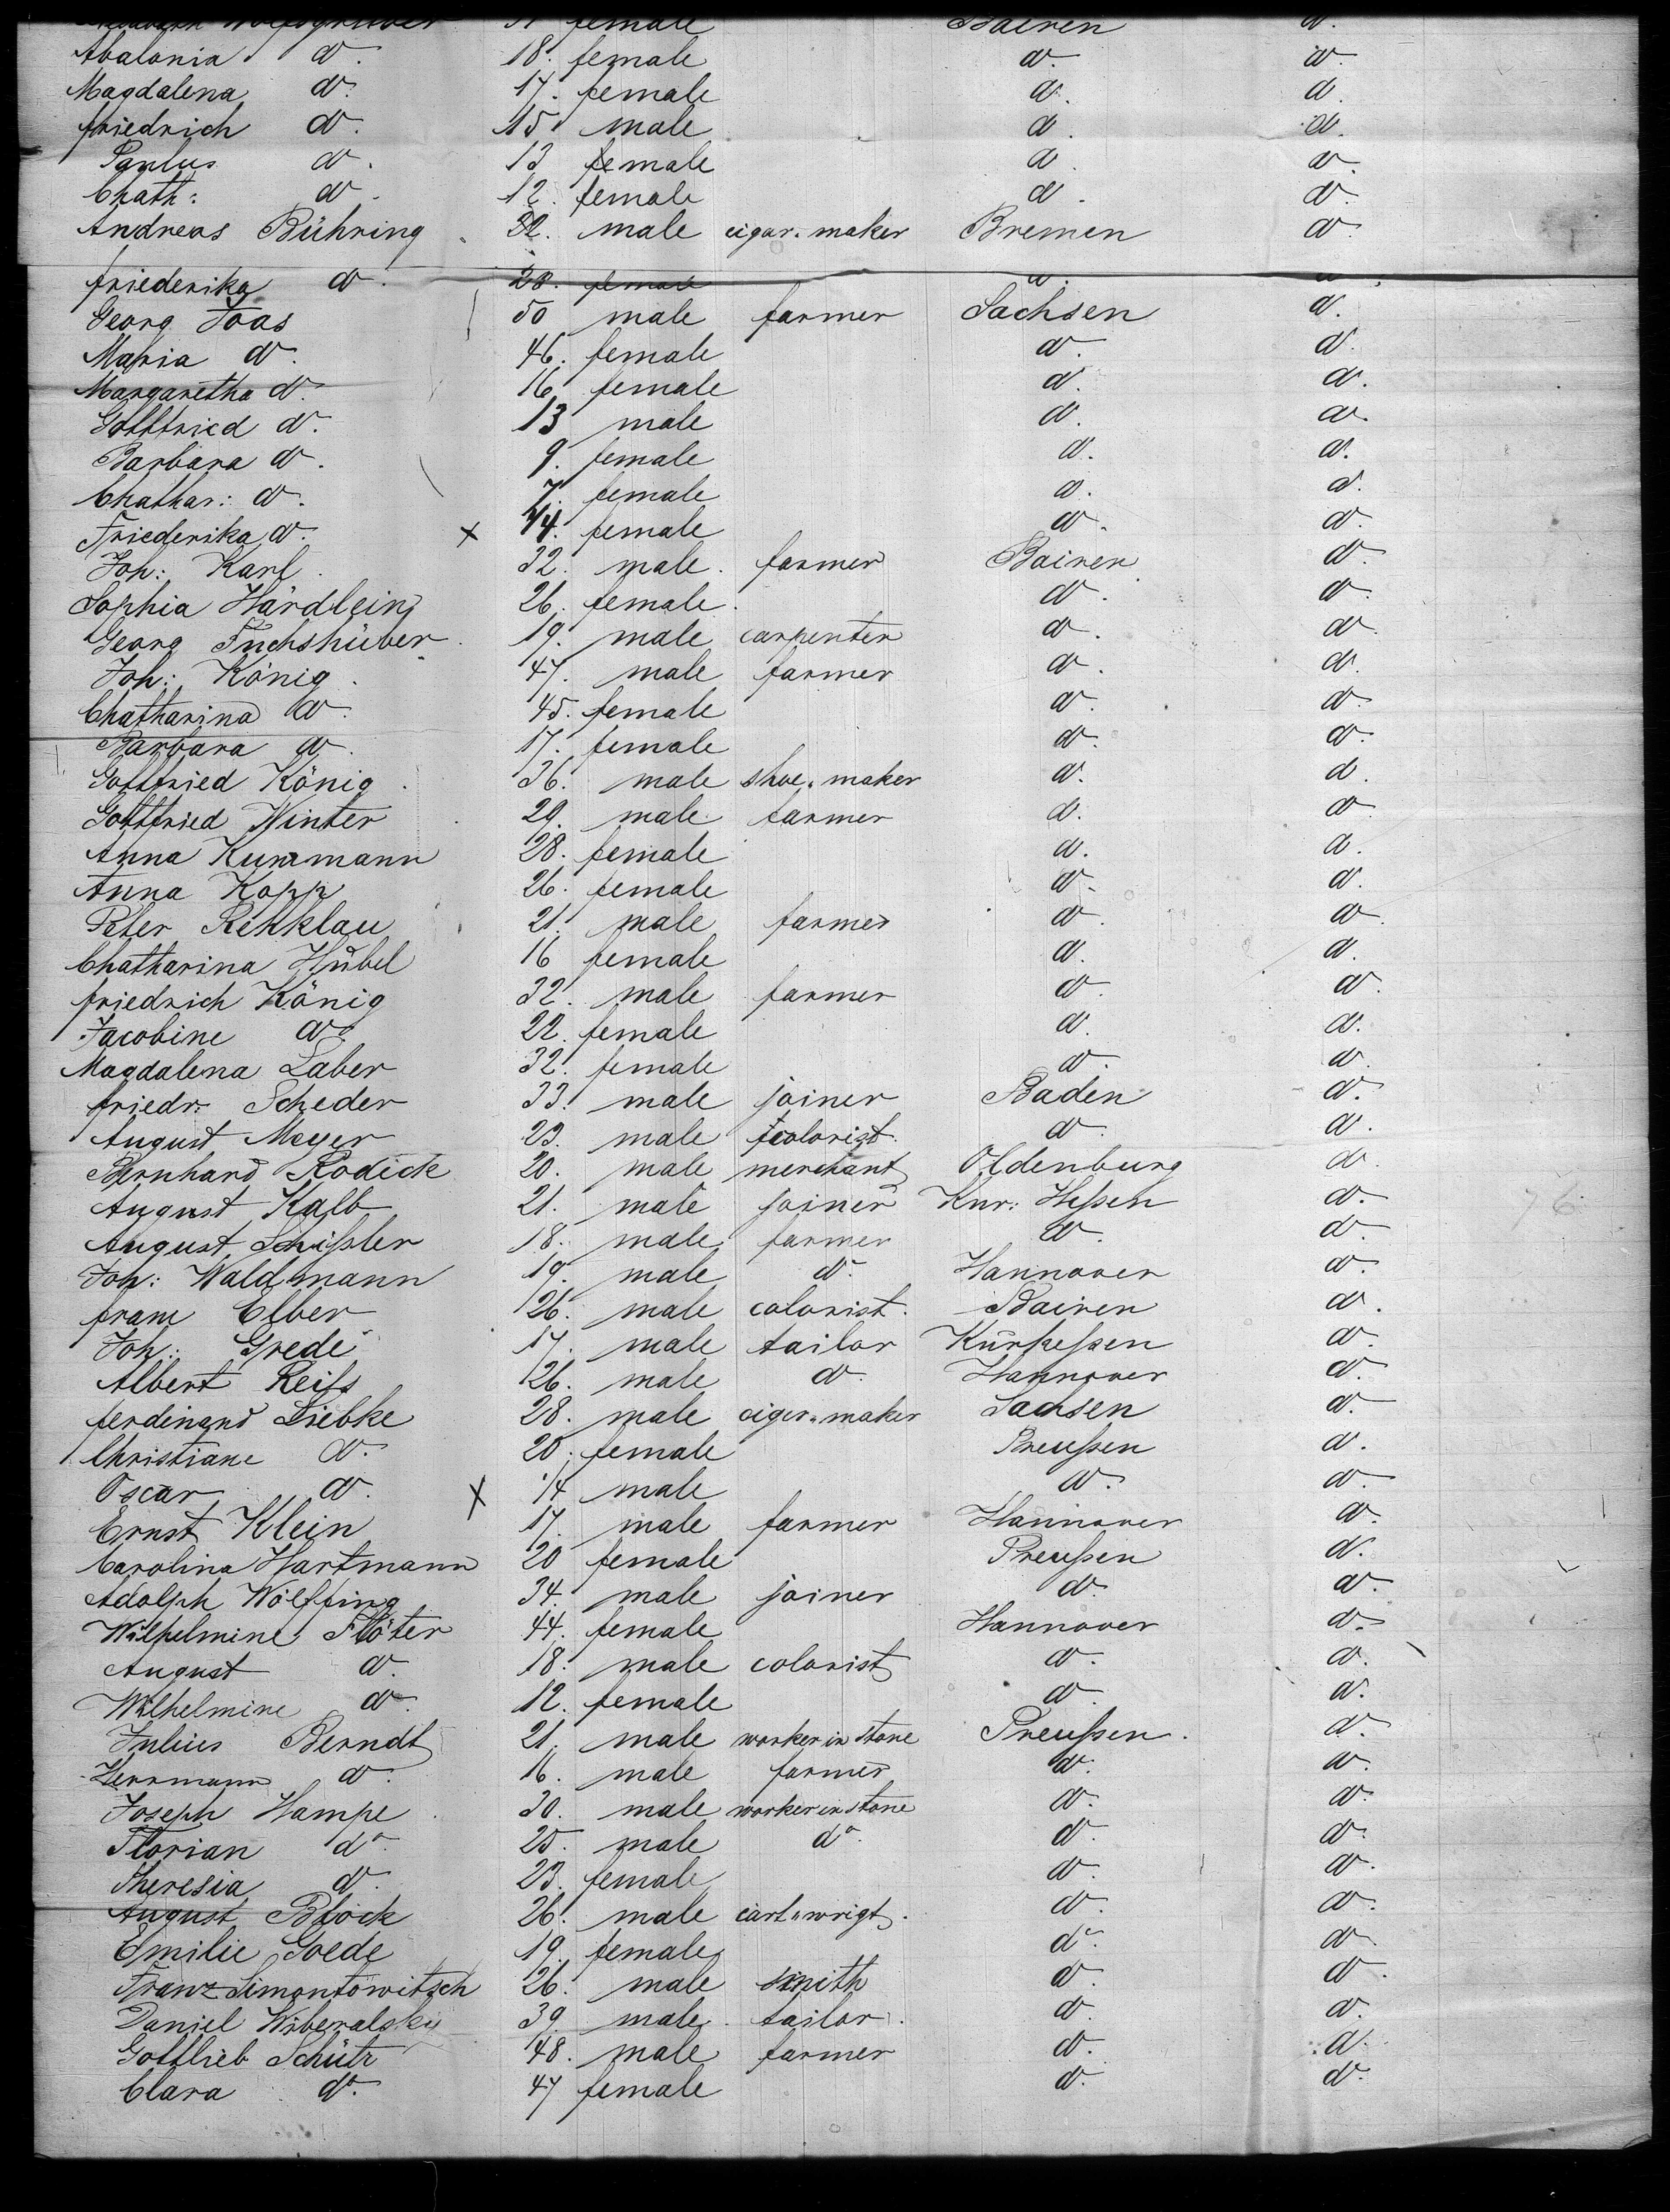 female Bairen d°.
Abalonia d°. 18. female d°. d°.
Magdalena d°. 17. female d°. d°.
friedrich d°. 15. male d°. d°.
Paulus d°. 13 male d°. d°.
Chath: d°. 12. female d°. d°.
Andreas Bühring 32. male cigar-maker Bremen d°.
friederika d°. 28. female d°. d°.
Georg Joas 50 male farmer Sachsen d°.
Maria d°. 46. female d°. d°.
Margaretha d°. 16 female d°. d°.
Gottfried d°. 13 male d°. d°.
Barbara d°. 9. female d°. d°.
Chathar: d°. 7. female d°. d°.
Friederika d°. x 1/4. female d°. d°.
Joh: Karl 32. male farmer Bairen d°.
Sophia Härdlein 26. female d°. d°.
Georg Fuchshüber 19. male carpenter d°. d°.
Joh: König 47. male farmer d°. d°.
Chatharina d°. 45. female d°. d°.
Barbara d°. 17. female d°. d°.
Gottfried König 36. male shoe-maker d°. d°.
Gottfried Winter 29. male farmer d°. d°.
Anna Kummann 28. female d°. d°.
Anna Kopp 26. female d°. d°.
Peter Rehklau 21. male farmer d°. d°.
Chatharina Hübel 16 female d°. d°.
friedrich König 32. male farmer d°. d°.
Jacobine d°. 22. female d°. d°.
Magdalena Laber 32. female d°. d°.
friedr: Scheder 33. male joiner Baden d°.
August Meyer 23. male colorist d°. d°.
Bernhard Rodick 20. male merchant Oldenburg d°.
August Kalb 21. male joiner Kur: Heſsen d°.
August Schiſsler 18. male farmer d°. d°.
Joh: Waldmann 19. male d°. Hannover d°.
franc Elber 26. male colorist. Bairen d°.
Joh: Grede 17. male tailor Kurheſsen d°.
Albert Reiſs 26. male d°. Hannover d°.
ferdinand Liebke 28. male cigar-maker Sachsen d°.
Christiane d°. 20. female Preuſsen d°.
Oscar d°. x 1/4 male d°. d°.
Ernst Klein 17. male farmer Hannover d°.
Carolina Hartmann 20 female Preuſsen d°.
Adolph Wölffing 34. male joiner d°. d°.
Wilhelmine Flöter 44. female Hannover d°.
August d°. 18. male colorist d°. d°.
Wilhelmine d°. 12. female d°. d°.
Julius Berndt 21. male worker in stone Preuſsen. d°.
Herrmann d°. 16. male farmer d°. d°.
Joseph Hampe 30. male worker in stone d°. d°.
Florian d°. 25. male d°. d°. d°.
Theresia d°. 23. female d°. d°.
August Block 26. male cart-wrigt. d°. d°.
Emilie Goede 19. female d°. d°.
Franz Simontowitsch 26. male smith d°. d°.
Daniel Wiberalsky 39. male tailor. d°. d°.
Gottlieb Schütz 48. male farmer d°. d°.
Clara d°. 47 female d°. d°.